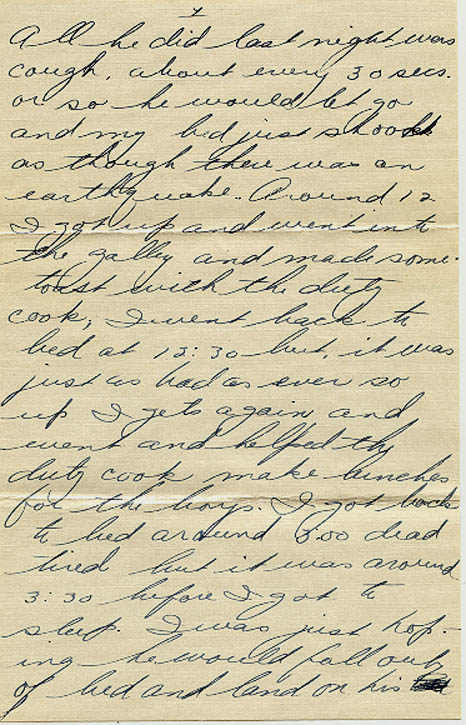 7
All he did last night was
cough, about every 30 secs.
or so he would let go
and my bed just shook
as though there was an
earthquake. Around 12
I got up and went into
the galley and made some
toast with the duty
cook, I went back to
bed at 12:30 but, it was
just as bad as ever so
up I gets again and
went and helped the
duty cook make lunches
for the boys. I got back
to bed around 3:00 dead
tired but it was around
3:30 before I got to
sleep. I was just hop-
ing he would fall out
of bed and land on his